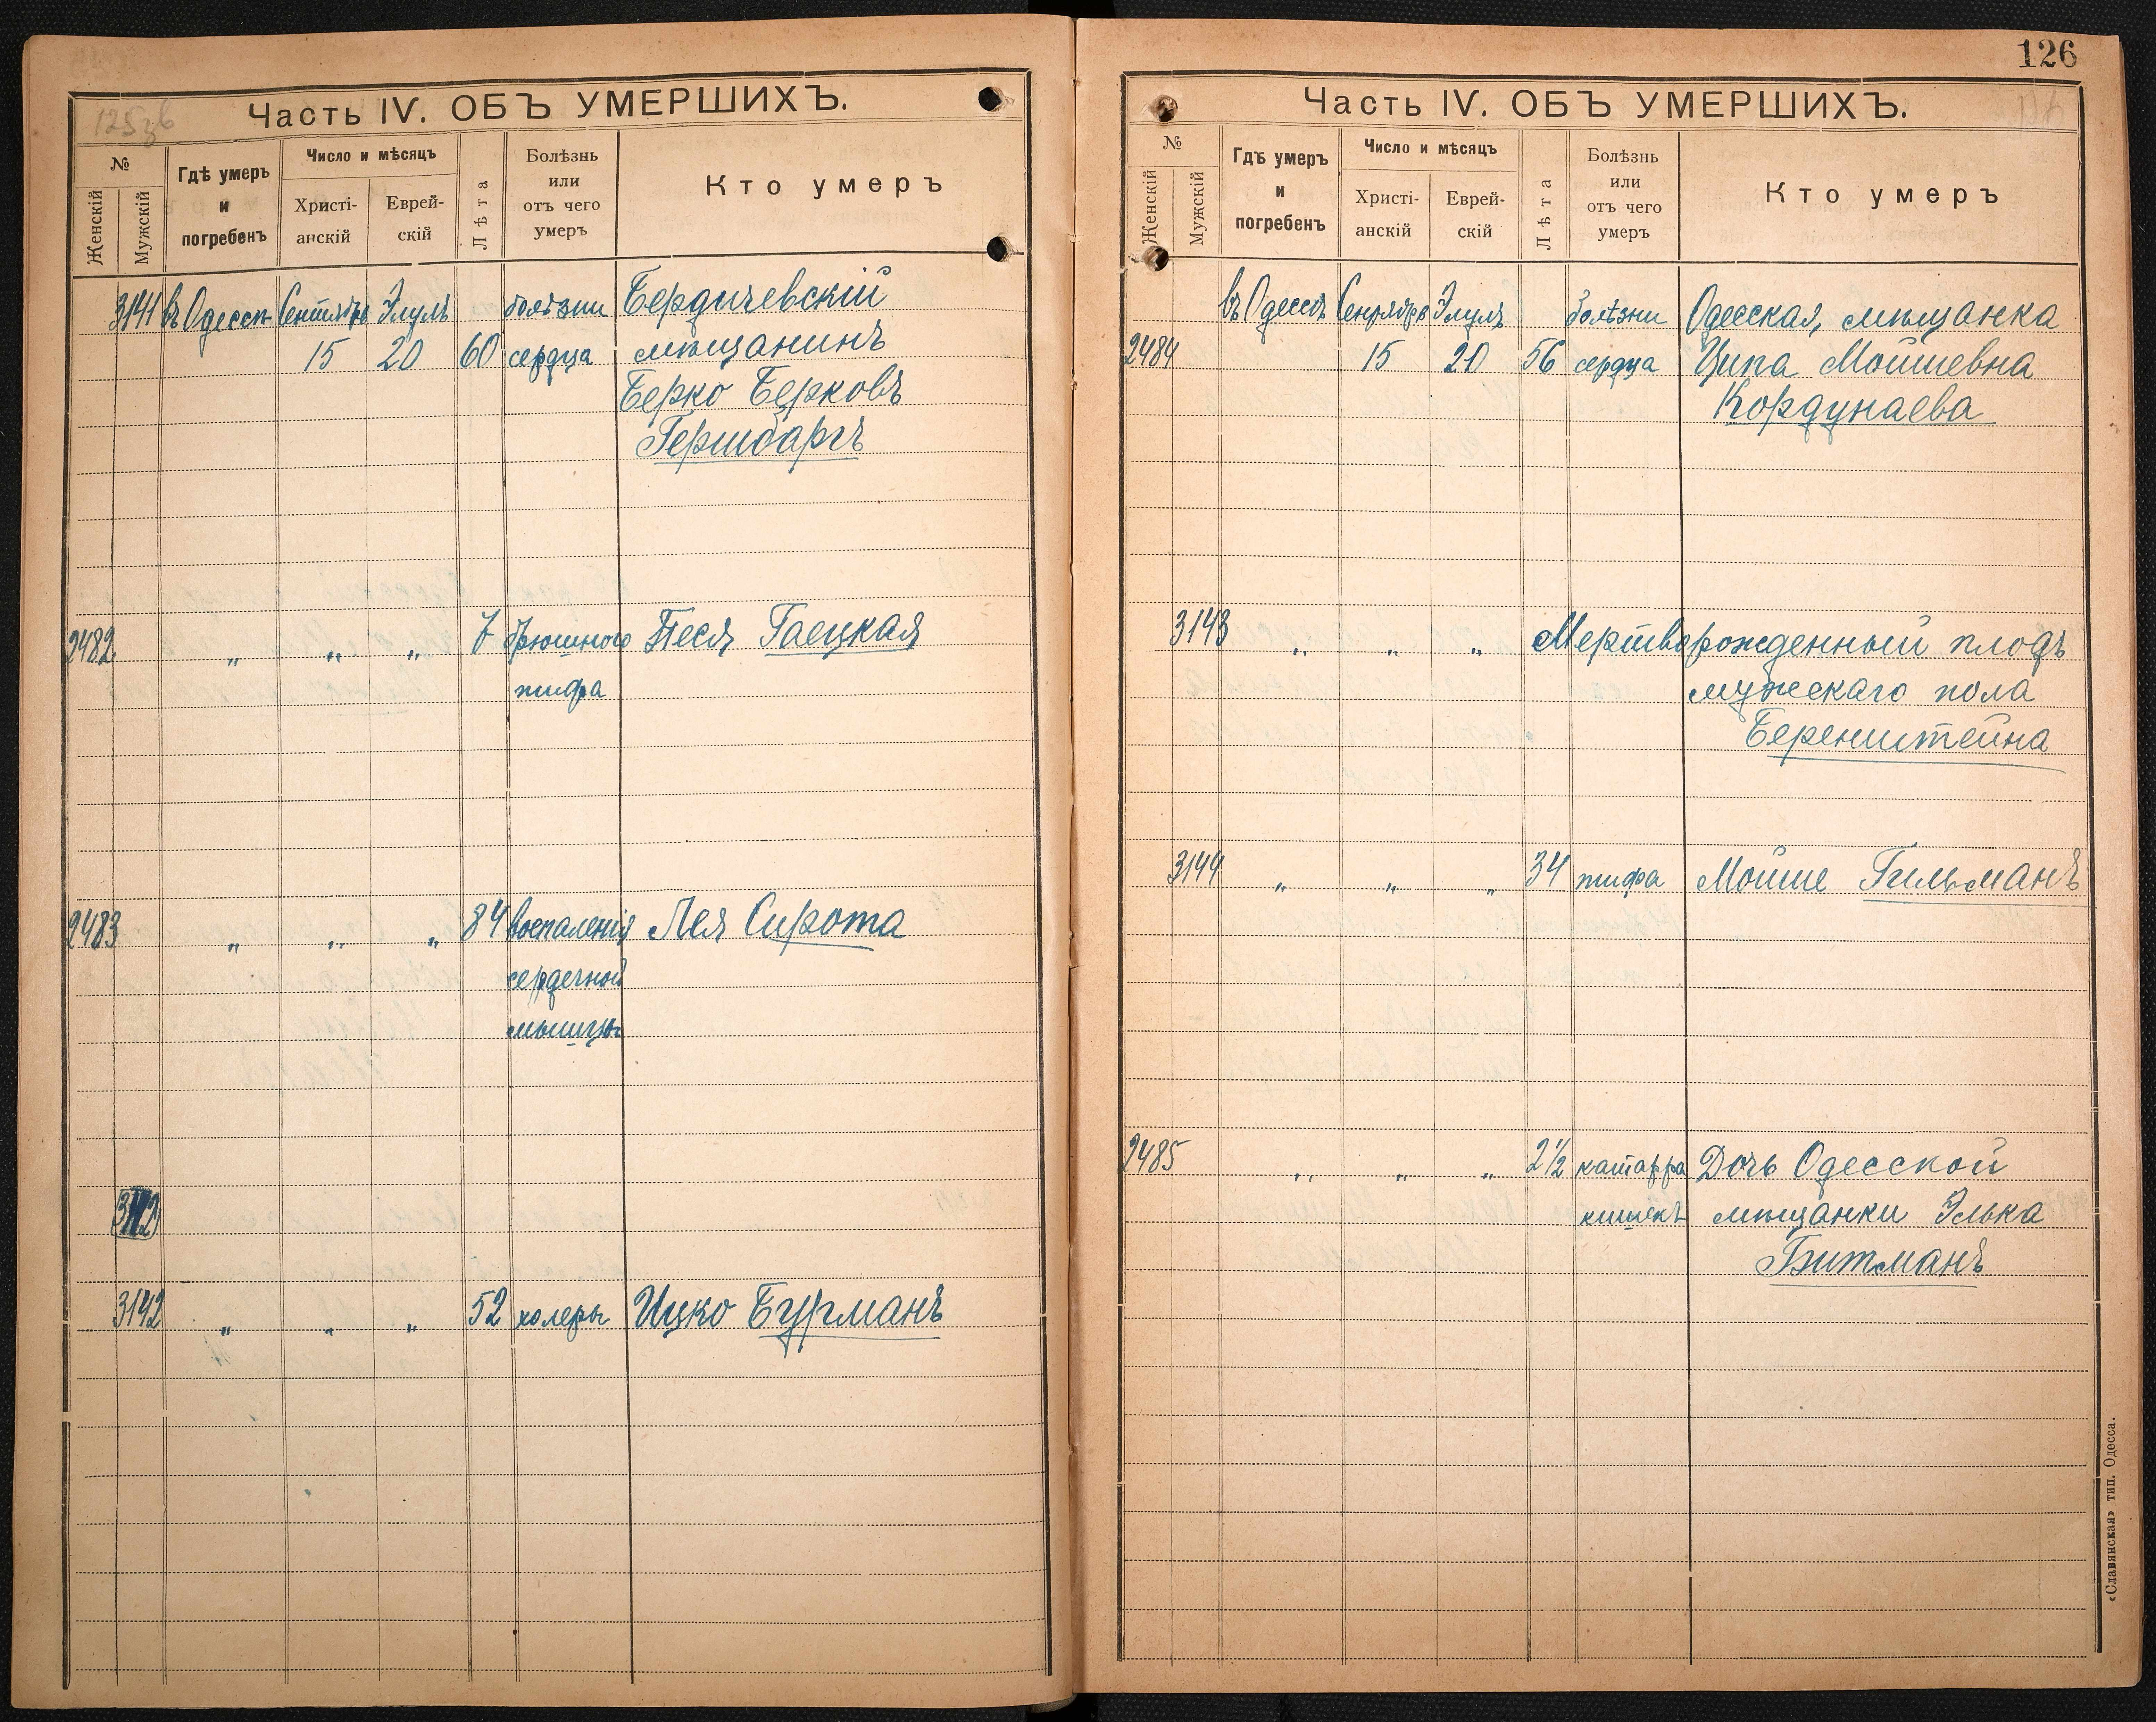 125 зв
Часть IV. ОБЪ УМЕРШИХЪ.
№
Женскій
Мужскій
Гдѣ умеръ
и
погребенъ
Число и мѣсяцъ
Христі-
анскій
Еврей-
скій
Лѣта
Болѣзнь
или
отъ чего
умеръ
Кто умеръ
3141 въ Одессѣ Сентябрь Элулъ болѣзни Бердичевскій
15 20 60 сердца мѣщанинъ
Берко Берковъ
Гершбаргъ
2482 " " " 7 брюшного Песя Гаецкая
тифа
2483 " " " 84 воспаленія Лея Сирота
сердечной
мышцы
3142
3142 " " " 52 холеры Ицко Бургманъ
126
Часть IV. ОБЪ УМЕРШИХЪ.
№
Женскій
Мужскій
Гдѣ умеръ
и
погребенъ
Число и мѣсяцъ
Христі-
анскій
Еврей-
скій
Лѣта
Болѣзнь
или
отъ чего
умеръ
Кто умеръ
въ Одессѣ Сентябрь Элулъ болѣзни Одесская, мѣщанка
2484 15 20 56 сердца Ципа Мошиевна
Кордунаева
3143 " " " Мертворожденный плодъ
мужескаго пола
Беренштейна
3144 " " " 34 тифа Мойше Гильманъ
2485 " " " 2½ катарра Дочь Одесской
кишекъ мѣщанки Элька
Битманъ
«Славянская» тип. Одесса.